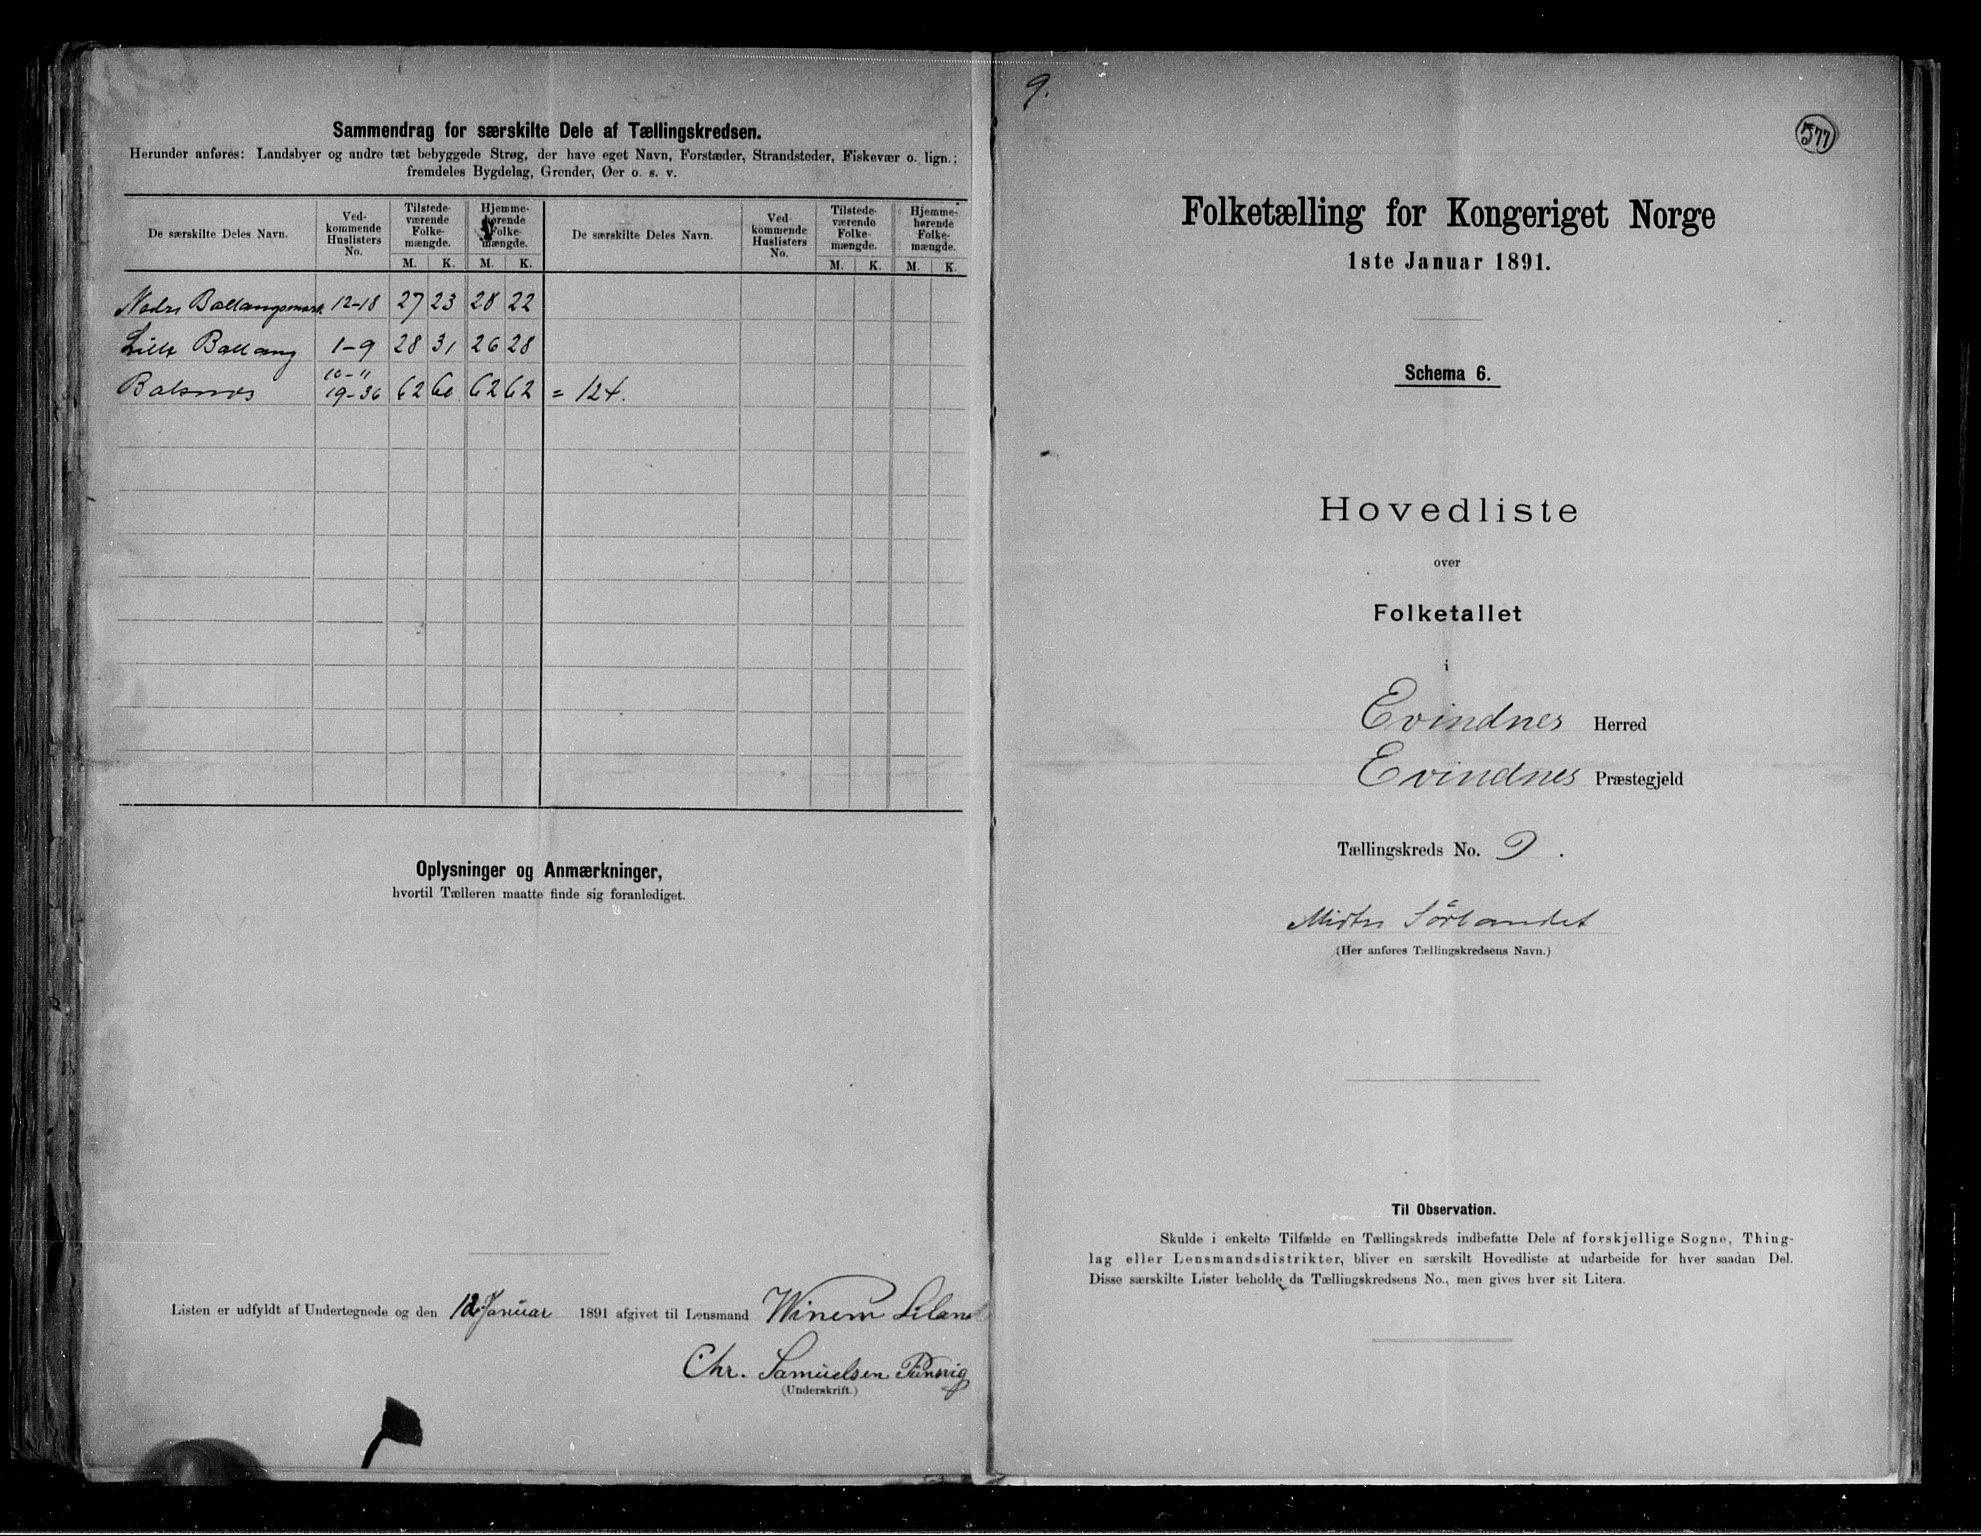 Sammendrag for særskilte Dele af Tællingskredsen.
Herunder anføres: Landsbyer og andre tæt bebyggede Strøg, der have eget Navn, Forstæder, Strandsteder, Fiskevær o. lign.;
fremdeles Bygdelag, Grender, Øer o. s. v.
De særskilte Deles Navn. Ved-kommende Huslisters No. Tilstede-værende Folke-mængde. Hjemme-hørende Folke-mængde. De særskilte Deles Navn. Ved-kommende Huslisters No. Tilstede-værende Folke-mængde. Hjemme-hørende Folke-mængde.
M. K. M. K. M. K. M. K.
Nedre Ballangsmark 12-18 27 23 28 22
Lille Ballang 1-9 28 31 26 28
10-11
Balsnes 19-36 62 60 62 62 = 124.
Oplysninger og Anmærkninger,
hvortil Tælleren maatte finde sig foranlediget.
Listen er udfyldt af Undertegnede og den 12 Januar 1891 afgivet til Lensmand Winem Liland
Chr. Samuelsen
(Underskrift.)
9.
577
Folketælling for Kongeriget Norge
1ste Januar 1891.
Schema 6.
Hovedliste
over
Folketallet
i
Evindnes Herred
Evindnes Præstegjeld
Tællingskreds No. 9.
Midtre Sörlandet
(Her anføres Tællingskredsens Navn.)
Til Observation.
Skulde i enkelte Tilfælde en Tællingskreds indbefatte Dele af forskjellige Sogne, Thing-
lag eller Lensmandsdistrikter, bliver en særskilt Hovedliste at udarbeide for hver saadan Del.
Disse særskilte Lister beholde da Tællingskredsens No., men gives hver sit Litera.